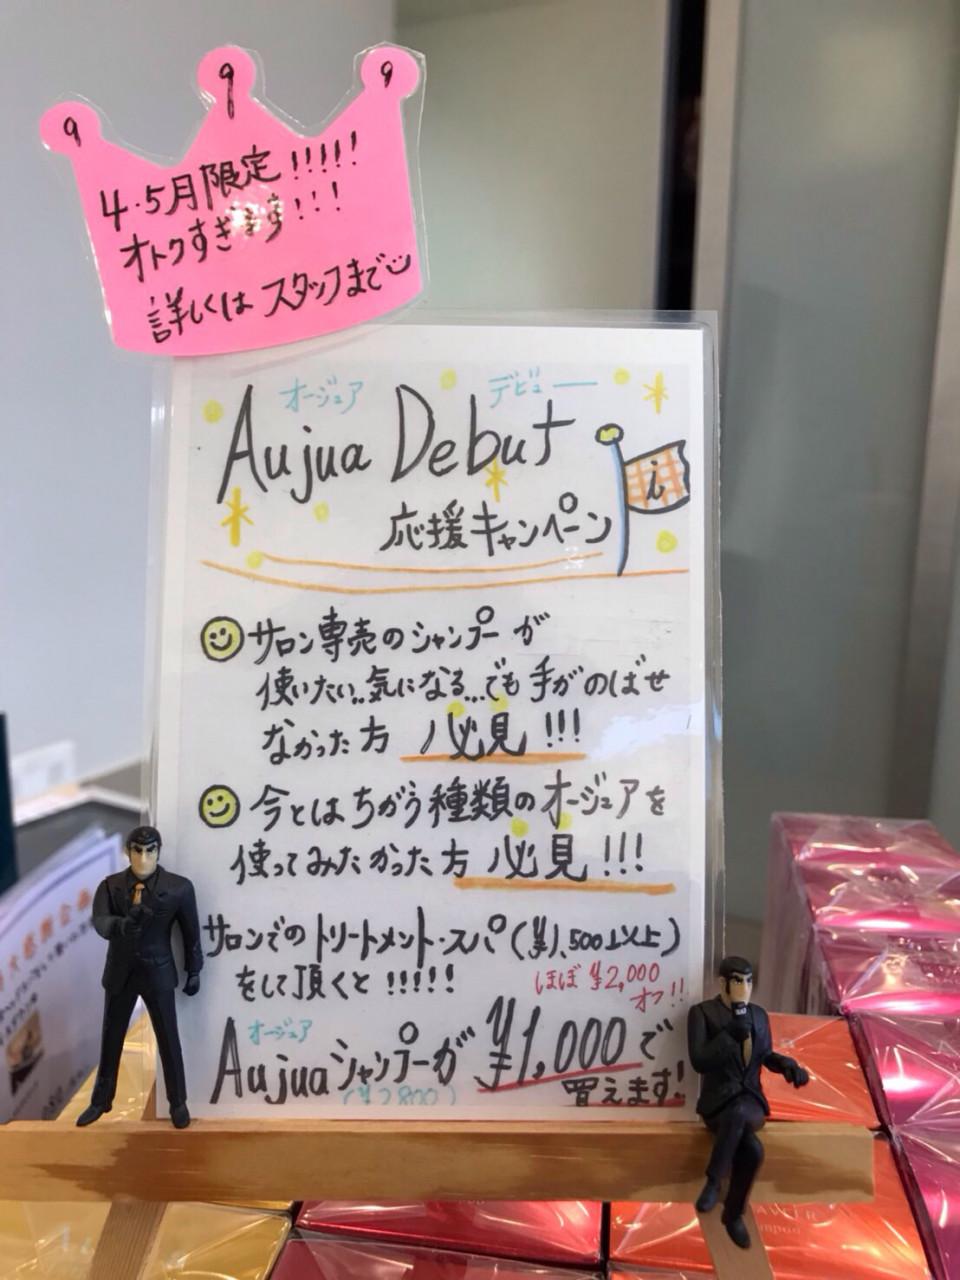 9 9 9
4・5月限定!!!!!
オトクすぎます!!!
詳しくはスタッフまで
オージュア デビュー
Aujua Debut
i
応援キャンペーン
サロン専売のシャンプーが
使いたい..気になる...でも手がのばせ
なかった方 必見!!!
今とはちがう種類のオージュアを
使ってみたかった方 必見!!!
サロンでのトリートメント・スパ(¥1,500以上)
をして頂くと!!!!!
ほぼ¥2,000
オフ!!
オージュア
Aujuaシャンプーが¥1,000で
(¥2,800) 買えます!